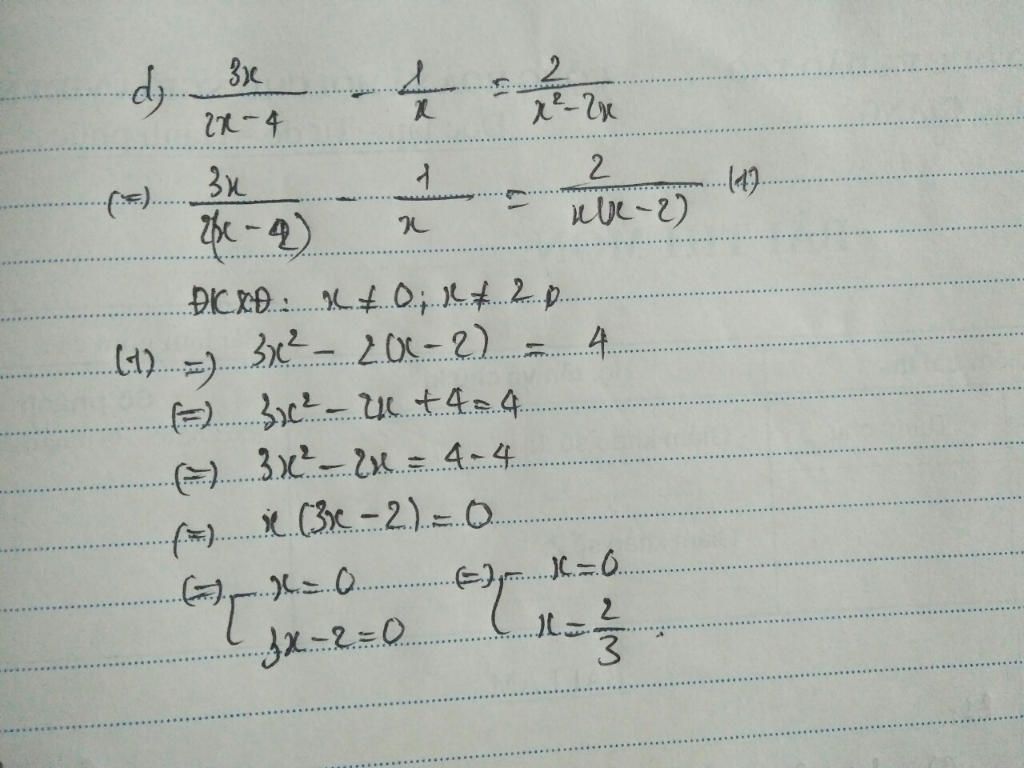 d) 3x/(2x-4) - 1/x = 2/(x²-2x)
(=) 3x/(2(x-2)) - 1/x = 2/(x(x-2)) (1)
ĐKXĐ: x ≠ 0; x ≠ 2.
(1) =) 3x² - 2(x-2) = 4
(=) 3x² - 2x + 4 = 4
(=) 3x² - 2x = 4-4
(=) x(3x-2) = 0
(=) [ x=0 (=) [ x=0
3x-2=0 x=2/3.